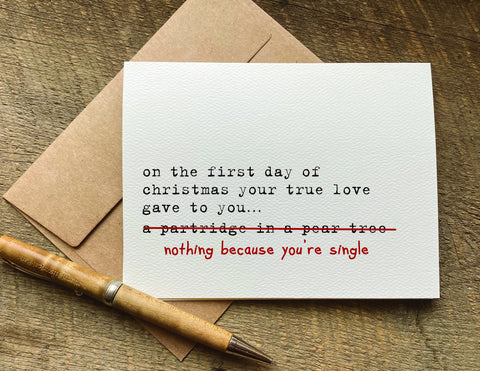 on the first day of
christmas your true love
gave to you...
a partridge in a pear tree
nothing because you're single